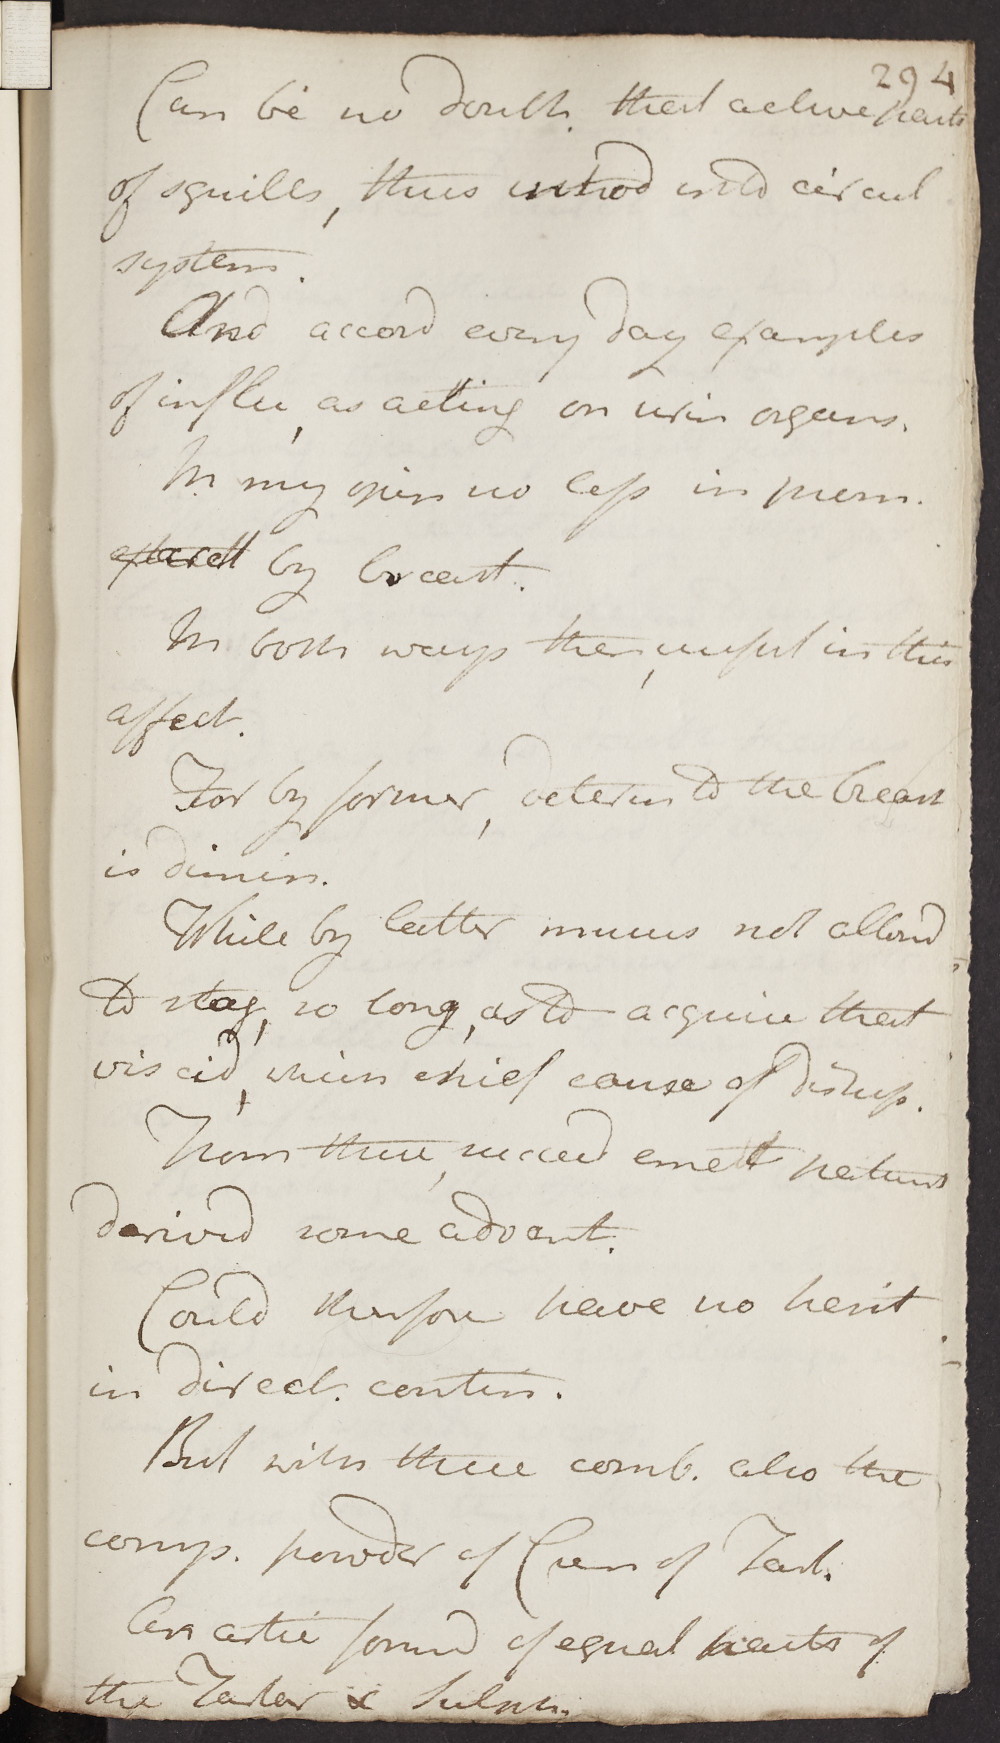 294
Can be no doubt. that active parts
of squills, thus introd into circul
system.
And accord every day examples
of influ, as acting on urin organs.
In my opin no less in prom.
expect by breast.
In both ways then, useful in this
affect.
For by former, determ to the breast
is dimin.
While by latter mucus not allowd
to stay, so long, as to acquire that
viscid, which chief cause of distress.
From these, succeed emett patient
derived some advant.
Could therefore have no hesit
in direct. contin.
But with these comb. also the
comp. powder of Crem of Tart.
An artic formd of equal parts of
the Tartar & Sulph.